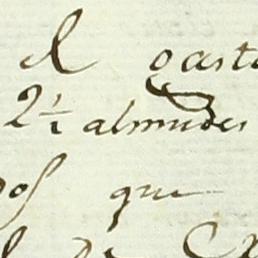 el gasto
2½ almudes
dos que